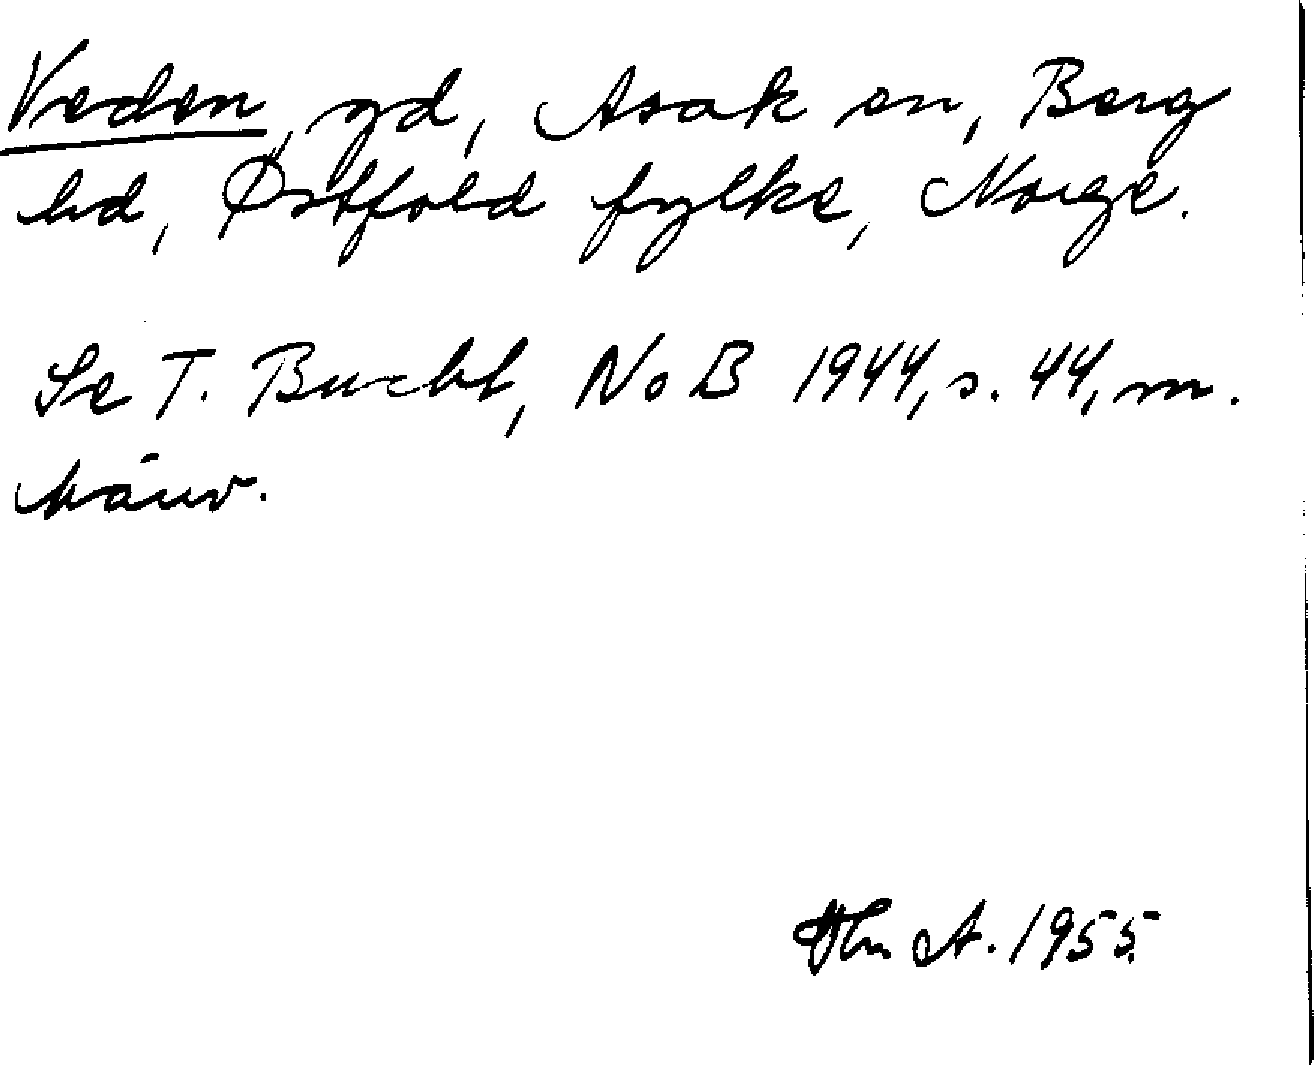 Veden, gd, Asak sn, Berg
hd, Østfold fylke, Norge.
Se T. Bucht, NoB 1944, s. 44, m.
hänv.
A. 1955.